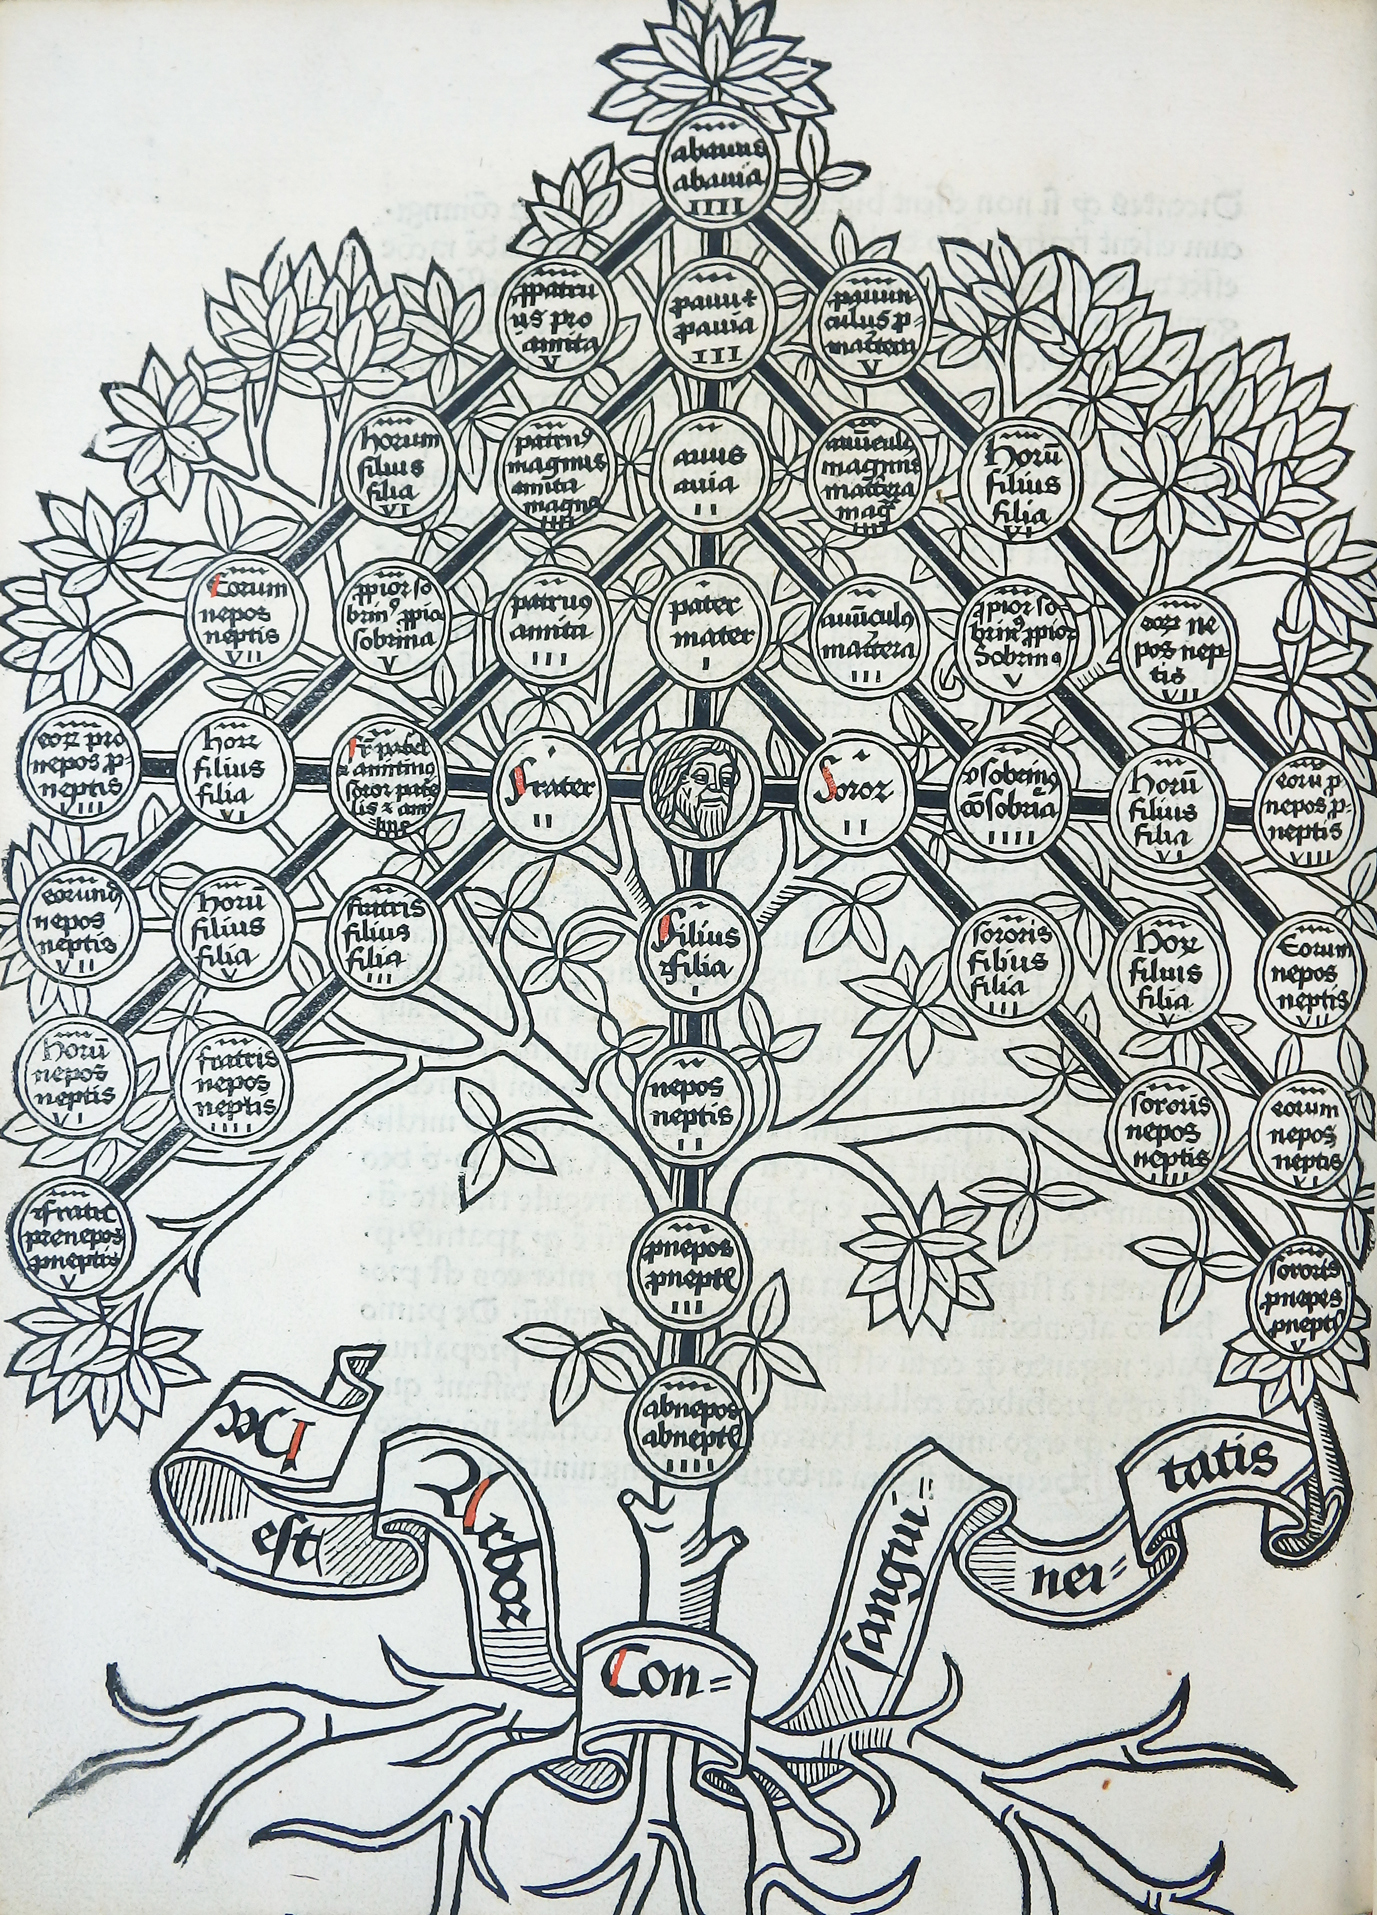 abauus
abauia
IIII
ꝓpatru
us pro
amita
V
ꝓauuꝰ
ꝓauia
III
ꝓauun
culus ꝓ-
mat̄tera
V
horum
filius
filia
VI
patruꝰ
magnus
amita
magna
IIII
auus
auia
II
auūculꝰ
magnus
mat̄tera
maḡ
IIII
Horū
filius
filia
VI
Eorum
nepos
neptis
VII
ꝓpior so
brinꝰ ꝓpior
sobrina
V
patruꝰ
amita
III
pater
mater
I
auūculꝰ
mat̄tera
III
ꝓpior so-
brinꝰ ꝓpior
Sobrina
V
eoꝝ ne
pos nep
tis
VII
eoꝝ pro
nepos ꝓ-
neptis
VIII
Hoꝝ
filius
filia
VI
amitinus
soror
Frater
II
Soror
II
ꝯsobrinꝰ
cōsobrīa
IIII
Horū
filius
filia
VI
eoru ꝓ-
nepos ꝓ-
neptis
VIII
eorundꝫ
nepos
neptis
VII
Horū
filius
filia
V
fratris
filius
filia
III
Filius
⁊filia
I
sororis
filius
filia
III
Hoꝝ
filius
filia
V
Eorum
nepos
neptis
VII
Horū
nepos
neptis
VI
fratris
nepos
neptis
IIII
nepos
neptis
II
sororis
nepos
neptis
IIII
eorum
nepos
neptis
VI
fratris
pronepos
ꝓneptis
V
ꝓnepos
ꝓneptis
III
sororis
ꝓnepos
ꝓneptis
V
abnepos
abneptis
IIII
Hec
est
Arbor
Con=
sangui
nei=
tatis